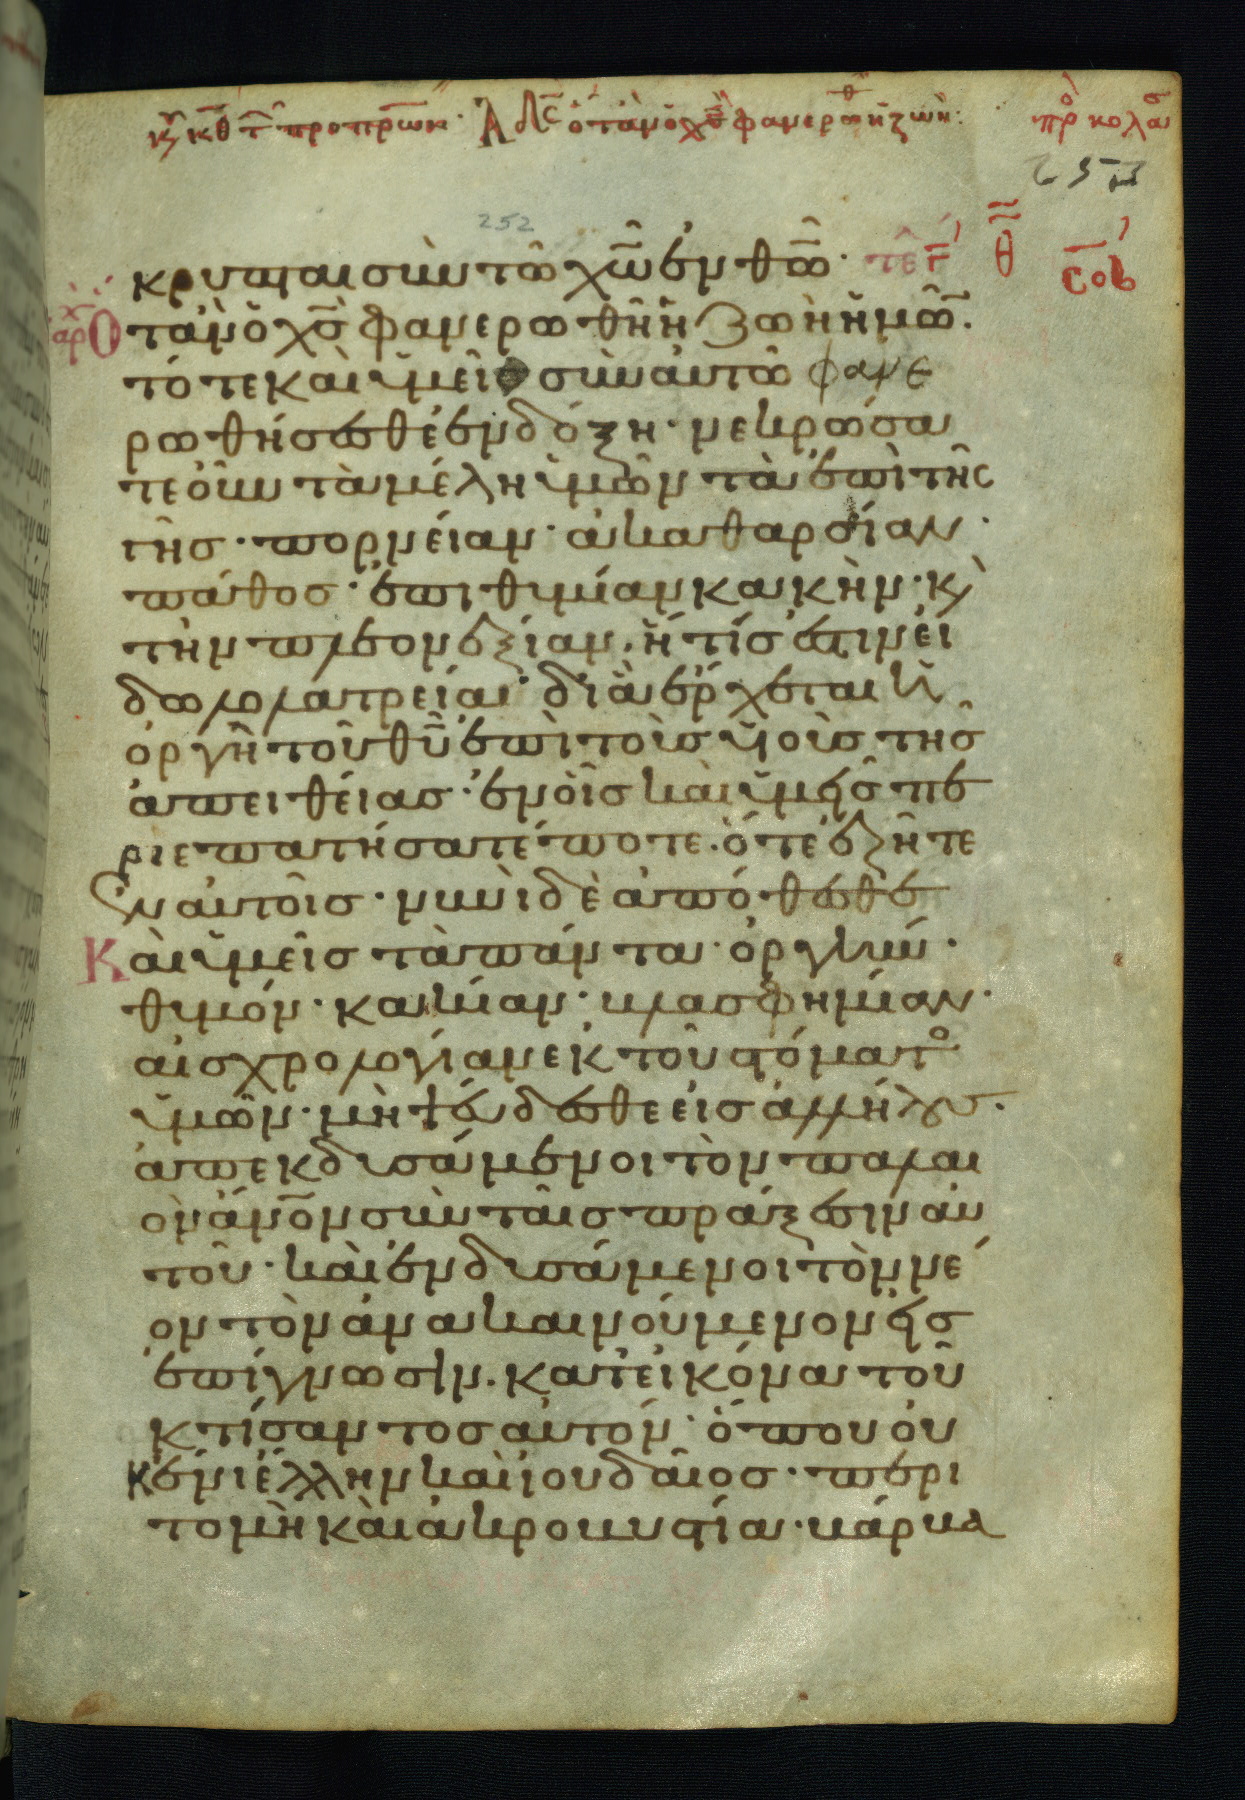 κυ κθ τ προ πρων. Αδ ὅταν ὁ χς φανερωθ ἡ ζωὴ: πρ κολασ
252
κρυπται σὺν τῶ χω ἐν θω. τε Γ θ σοβ
αρ Ὅταν ὁ χς φανερωθῆ ἡ ζωὴ ἡμῶ.
τότε καὶ ὑμεῖς σὺν αὐτῶ φανε
ρωθήσεσθε ἐν δόξη· νεκρώσα
τε οὖν τὰ μέλη ὑμῶν τὰ ἐπὶ τῆς
γῆς· πορνείαν· ἀκαθαρσίαν·
πάθος· ἐπιθυμίαν κακὴν· κὶ
τὴν πλεονεξίαν, ἥτίς ἐστιν εἰ
δωλολατρεία· διὰ ἔρχεται ἡ
ὀργὴ τοῦ θυ ἐπὶ τοὺς υἱοὺς τῆς
ἀπειθείας· ἐν οἷς καὶ ὑμεῖς πε
ριεπατήσατέ ποτε· ὅτε ἐζῆτε
ἐν αὐτοῖς· νυνὶ δὲ ἀπόθεσθε
Καὶ ὑμεῖς τὰ πάντα· ὀργὴν·
θυμόν· κακίαν· βλασφημίαν·
αἰσχρολογίαν ἐκ τοῦ στόματο
ὑμῶν· μὴ ψεύδεσθε εἰς ἀλλήλους·
ἀπεκδυσάμενοι τὸν παλαι
ὸν ἄνον σὺν ταῖς πράξεσιν αὐ
τοῦ· καὶ ἐνδυσάμενοι τὸν νέ
ον τὸν ἀνακαινούμενον εἰς
ἐπίγνωσιν. κατ' εἰκόνα τοῦ
κτίσαντος αὐτόν· ὅπου οὐ
κ ἔνι ἕλλην καὶ ἰουδαῖος· περι
τομὴ καὶ ἀκροβυστία· βάρβα